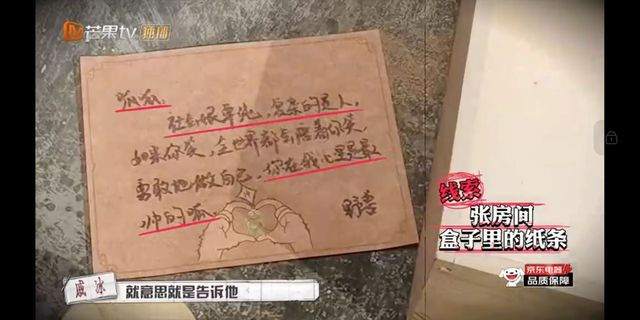 芒果tv 独播
狐狐.
社会很单纯，复杂的是人.
如果你笑，全世界都会陪着你笑.
勇敢地做自己，你在我心里是最
帅的狐.
线索
张房间
盒子里的纸条
京东电器
品质保障
戚冰
就意思就是告诉他